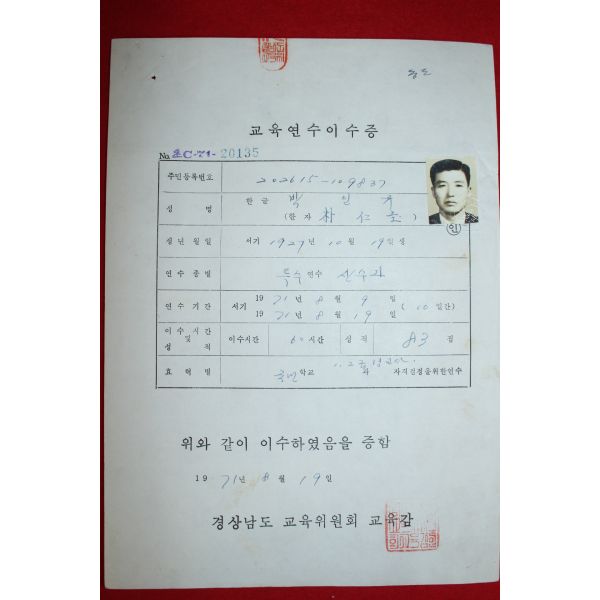 교육연수이수증
No. 초C-71-20135
주민등록번호 202615-109837
성 명 한글 박 인
(한자 朴 仁 )
생년월일 서기 1927년 10월 19일생
연수종별 특수연수
연수기간 서기 1971년 8월 9일 (10일간)
1971년 8월 19일
이수시간 및 성적 이수시간 60시간 성적 83점
효력별 국민학교 과 자격검정을위한연수
위와 같이 이수하였음을 증함
1971년 8월 19일
경상남도 교육위원회 교육감